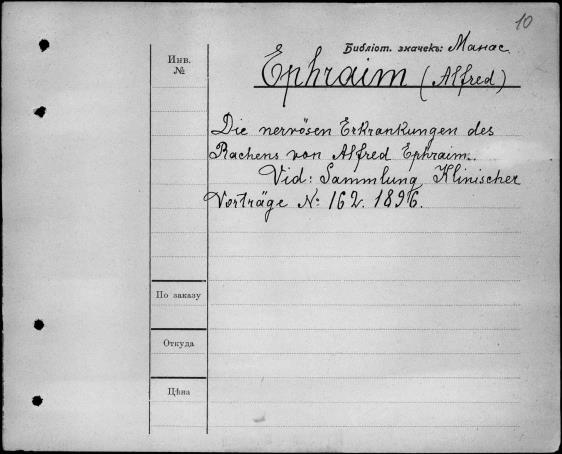 10
Библіот. значекъ: Манас
Инв.
№
Ephraim (Alfred)
Die nervösen Erkrankungen des
Rachens von Alfred Ephraim.
Vid: Sammlung Klinischer
Vorträge №: 162. 1896.
По заказу
Откуда
Цѣна